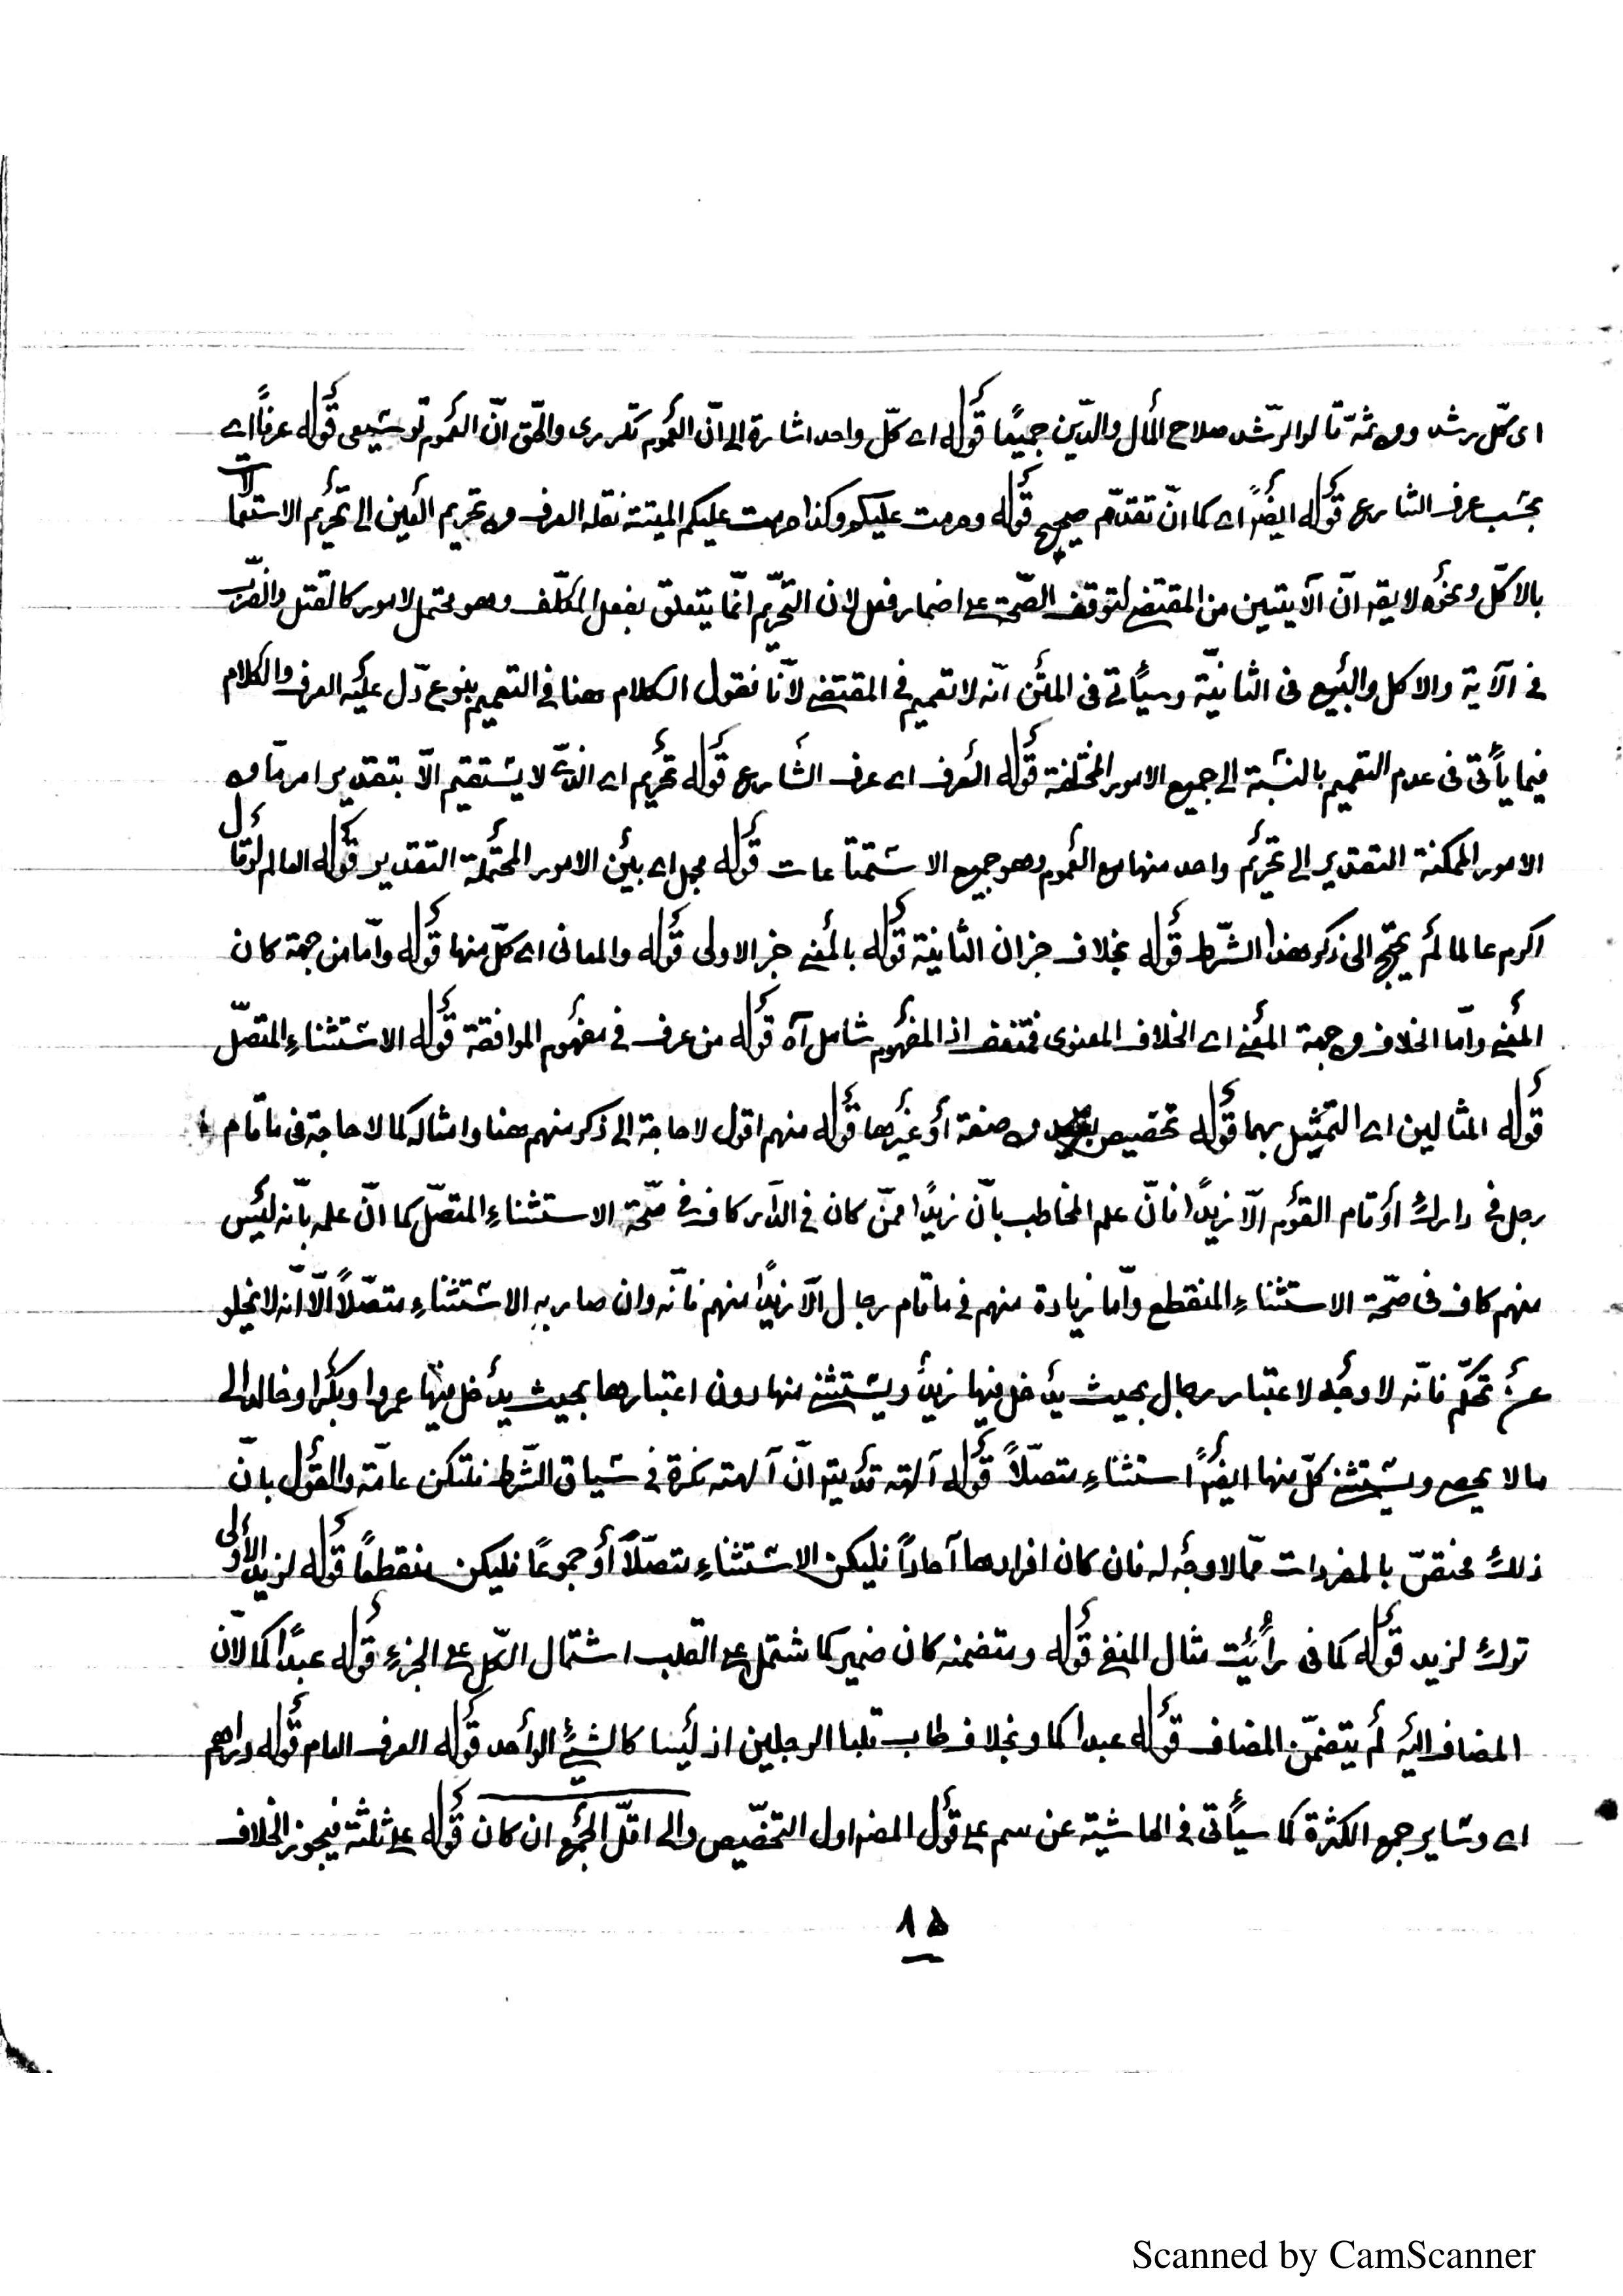 اى كلّ رشد ومن ثمّة قالوا الرّشد صلاح المال والدّين جميعا قوله اى كلّ واحد اشارة الى انّ العموم تكررى والحق انّ العموم توسيعى قوله عرفاً اى
بحسب عرف الشارع قوله ايضًا اى كما انّ تقدّم صحيح قوله وحرمت عليكم وكذا حرمت عليكم الميتة نقله العرف من تحريم العين الى تحريم الاستعمالات
بالاكل ونحوه لا يقه انّ الآيتين من المقتضى لتوقف الصّحة على اضمار فعل لان التحريم انّما يتعلق بفعل المكلّف وهو محتمل لامور كالقتل والضرب
فى الآية والاكل والبيع فى الثانيّة وسيأتى فى المتن انّه لا تعميم فى المقتضى لانّا نقول الكلام هنا فى التعميم بنوع دلّ عليه العرف والكلام
فيما يأتى فى عدم التعميم بالنسبة الى جميع الامور المختلفة قوله العرف اى عرف الشارع قوله تحريم اى الذى لا يستقيم الاّ بتقدير امر مّا من
الامور الممكنة التقدير الى تحريم واحد منها مع العموم وهو جميع الاستمتاعات قوله مجمل اى بين الامور المحتملة التقدير قوله العالم لو قال
اكرم عالما لم يحتج الى ذكر هذا الشّرط قوله بخلاف خبر ان الثانية قوله بالمعنى خبر الاولى قوله والمعانى اى كلّ منها قوله وامّا من جهة كان
المعنى وامّا الخلاف من جهة المعنى اى الخلاف المعنوى اذ المفهوم شامل آه قوله من عرف فى مفهوم الموافقة قوله الاستثناء المتصّل
قوله المثالين اى التمثيل بهما قوله تخصيص من صفة أو غيرها قوله منهم اقول لا حاجة الى ذكر منهم هنا وامثاله كما لا حاجة فى ما قام
رجل فى دارك أو قام القوم الاّ زيدًا فانّ علم المخاطب بانّ زيدًا ممّن كان فى الدّار كاف فى صّحة الاستثناء المتصّل كما انّ علمه بانّه ليس
منهم كاف فى صّحة الاستثناء المنقطع وامّا زيادة منهم فى ما قام رجال الاّ زيدًا منهم فانّه وان صار به الاستثناء متصّلاً الاّ انّه لا يخلو
عن تحكّم فانّه لا وجه لاعتبار رجال بحيث يدخل فيها زيد ويستثنى منها دون اعتبارها بحيث يدخل فيها عمروا وبكرا وخالد الى
ما لا يحصى ويستثنى كلّ منها ايضًا استثناء متصّلاً قوله آلهة قد يقه انّ آلهة نكرة فى سياق الشّرط فلتكن عامّة والقول بانّ
ذلك مختصّ بالمفردات ممّا لا وجه له فان كان افرادها آحاداً فليكن الاستثناء متصّلاً أو جموعًا فليكن منقطعًا قوله لزيد الاولى
تركك لزيد قوله كما فى رأيت مثال المنفى قوله ومتضمنه كان ضمير كما شتمل على القلب اشتمال الكل على الجزء قوله عبدًا كما لانّ
المضاف اليه لم يتضمّن المضاف قوله عبدا كما وبخلاف طاب قلبا الرجلين اذ ليسا كالشئ الواحد قوله العرف العام قوله دراهم
اى وسّاير جمع الكثرة كما سيأتى فى الحاشية عن سم على قول المصه اول التخصّيص والى اقلّ الجمع ان كان قوله على ثلثة فيجوز الخلاف
٨٥
Scanned by CamScanner